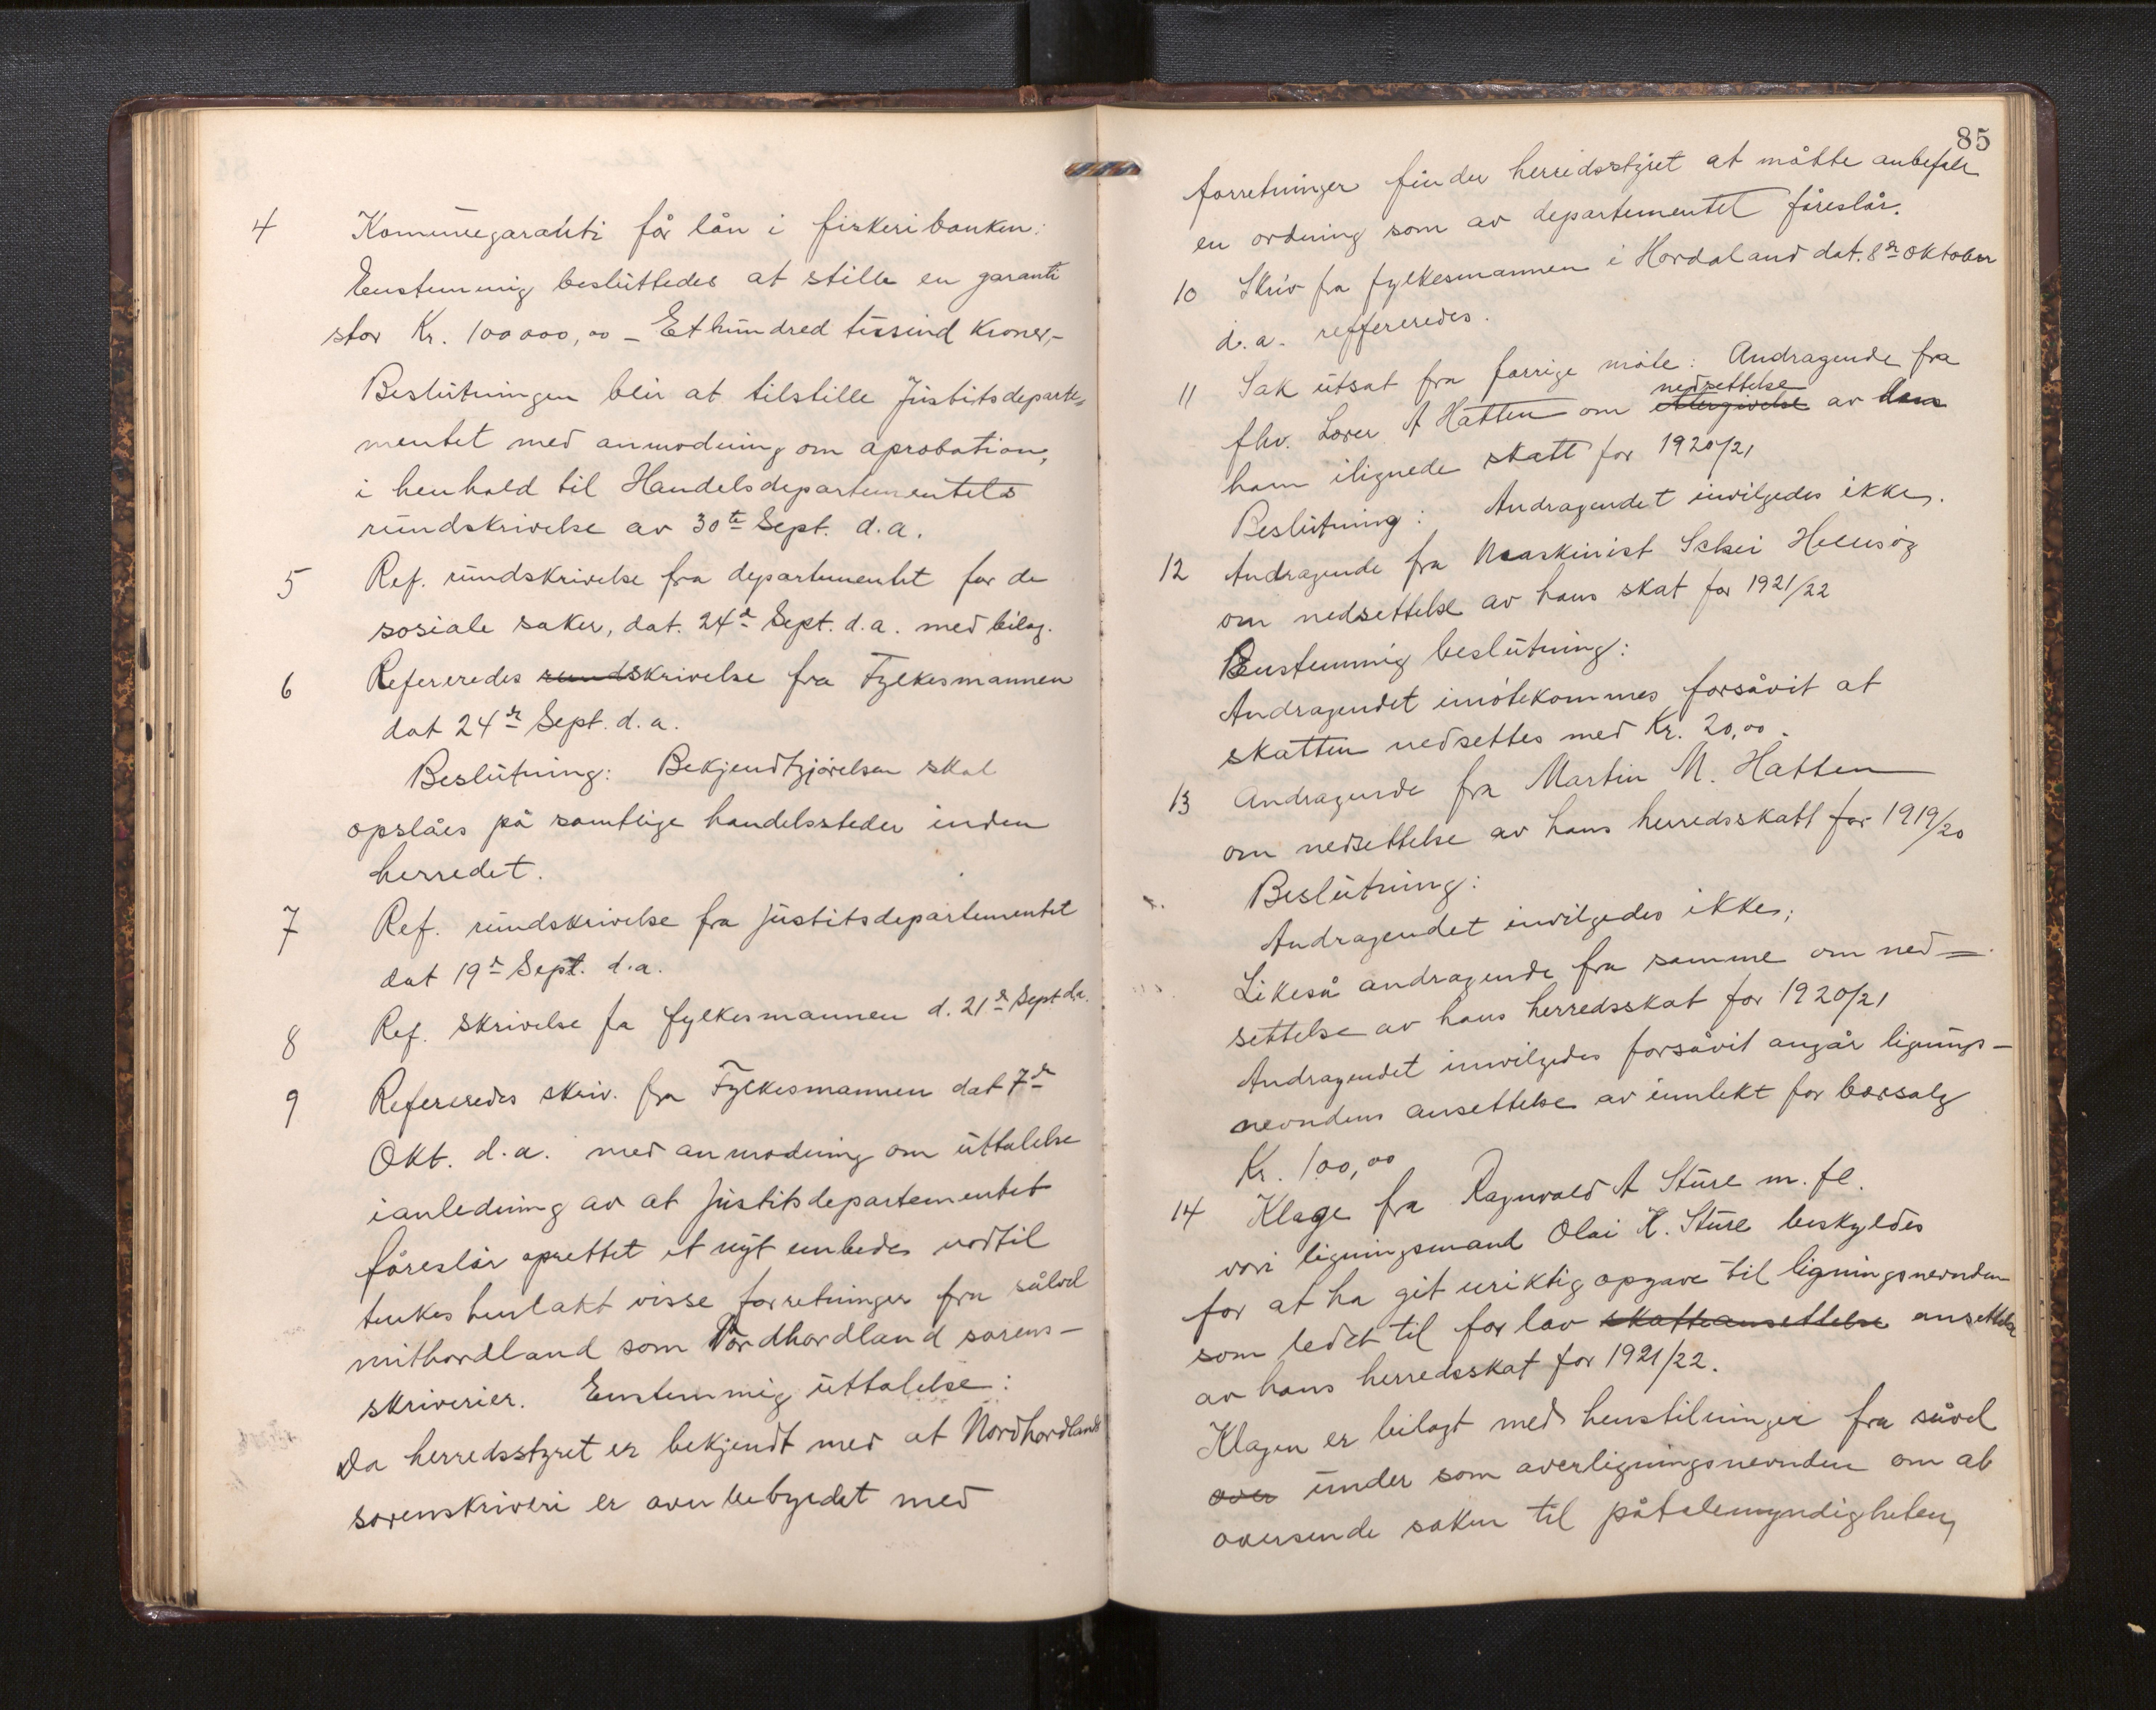 4 Komunegaranti før lån i fiskeribanken:
Eenstemmig besluttedes at stille en garanti
stor Kr. 100000,00 – Et hundred tusind Kroner,-
Beslutningen blir at tilstille Justitsdeparte-
mentet med anmodning om aprobation,
i henhold til Handelsdepartementets
rundskrivelse av 30te Sept. d.a.
5 Ref. rundskrivelse fra departementet for de
sosiale saker, dat. 24de Sept. d.a. med bilag.
6 Refereredes rundskrivelse fra Fylkesmannen
dat 24de Sept. d.a.
Beslutning: Bekjendtgjørelsen skal
opslåes på samtlige handelssteder inden
herredet.
7 Ref. rundskrivelse fra Justitsdepartementet
dat 19de Sept. d.a.
8 Ref. skrivelse fa fylkesmannen d. 21de Sept d.a.
9 Refereredes skriv. fra Fylkesmannen dat 7de
Okt. d.a. med anmodning om uttalelse
ianledning av at Justitsdepartementet
føreslår oprettet et nyt embede
tenkes henlakt visse forretninger fra såvel
mithordland som Nordhordland sorens-
skriverier. Enstemmig uttalelse:
Da herredsstyret er bekjendt med at Nordhordlands
sorenskriveri er overbebyrdet med
85
forretninger finder herredsstyret at måtte anbefale
en ordning som av departementet føreslår.
10 Skriv fra fylkesmannen i Hordaland dat. 8de oktober
d.a. reffereredes.
11 Sak utsat fra forrige møte: Andragende fra
nedsettelse
fhv. Lærer A Hatten om ettergivelse av hans
ham ilignede skatt for 1920/21
Beslutning: Andragendet inwilgedes ikke,
12 Andragende fra Maskinist Schei Hellisøy
om nedsettelse av hans skat for 1921/22
Eenstemmig beslutning:
Andragendet imøtekommes forsåvit at
skatten nedsettes med Kr. 20,00.
13 Andragende fra Martin M. Hatten
om nedsettelse av hans herredsskatt for 1919/20
Beslutning:
Andragendet inwilgedes ikke;
Likeså andragende fra samme om ned=
settelse av hans herredsskat for 1920/21
Andragendet innwilgedes forsåvit angår lignings-
nevndens ansettelse av inntekt for bærsalg
Kr. 100,00
14 Klage fra Ragnvald A Sture m. fl.
vori ligningsmand Olai K. Sture beskyldes
for at ha git uriktig opgave til ligningsnevnden
som ledet til for lav skatteansettelse ansettelse
av hans herredsskat for 1921/22.
Klagen er bilagt med henstilninger fra såvel
over under som overligningsnevnden om at
oversende saken til påtalemyndigheten,